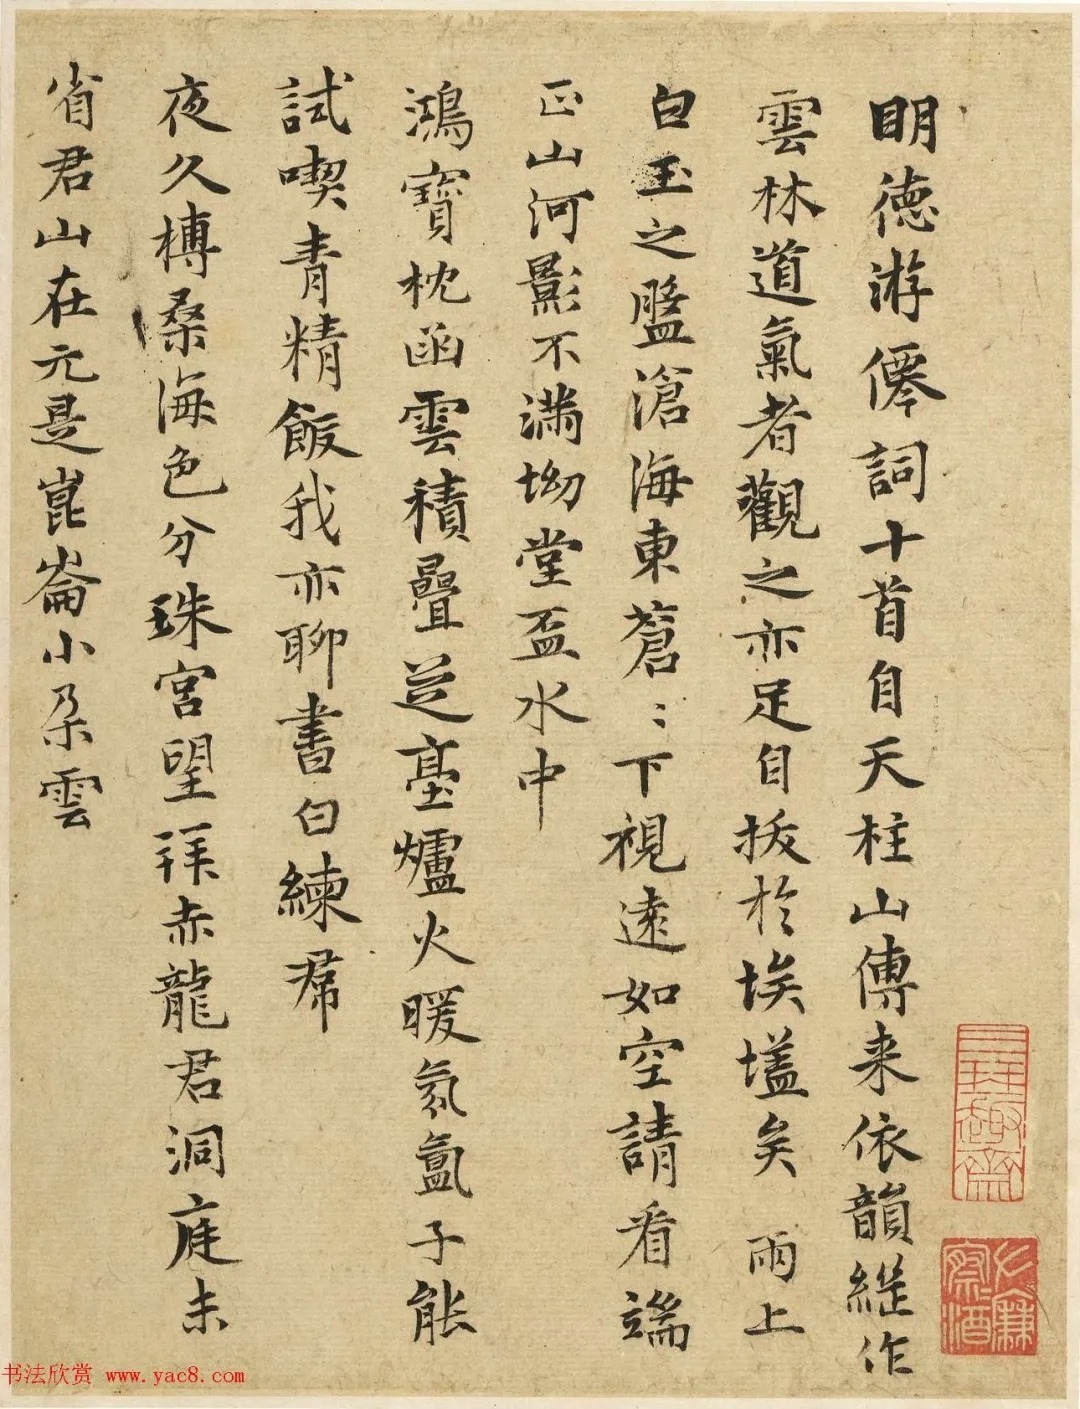 明德游僊詞十首自天柱山傳来依韻繼作
雲林道氣者觀之亦足自拔於埃壒矣 雨上
白玉之盤滄海東蒼〻下視遠如空請看端
正山河影不滿坳堂盃水中
鴻寶枕函雲積疊芝臺爐火暖氛氳子能
試喫青精飯我亦聊書白練帬
夜久榑桑海色分珠宮望拜赤龍君洞庭未
省君山在元是崑崙小朵雲
三琴趣齋
书法欣赏 www.yac8.com